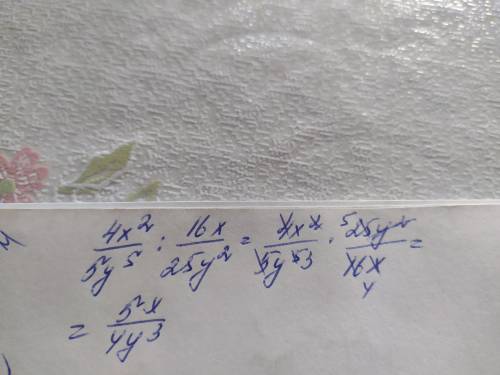 4x²/5y⁵ : 16x/25y² = 4x²/5y⁵ 3 · 5 25y²/16x 4 =
= 5x/4y³